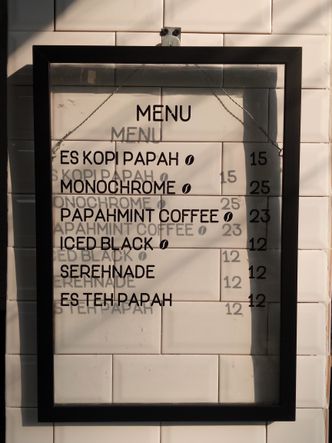 MENU
ES KOPI PAPAH 15
MONOCHROME 25
PAPAHMINT COFFEE 23
ICED BLACK 12
SEREHNADE 12
ES TEH PAPAH 12